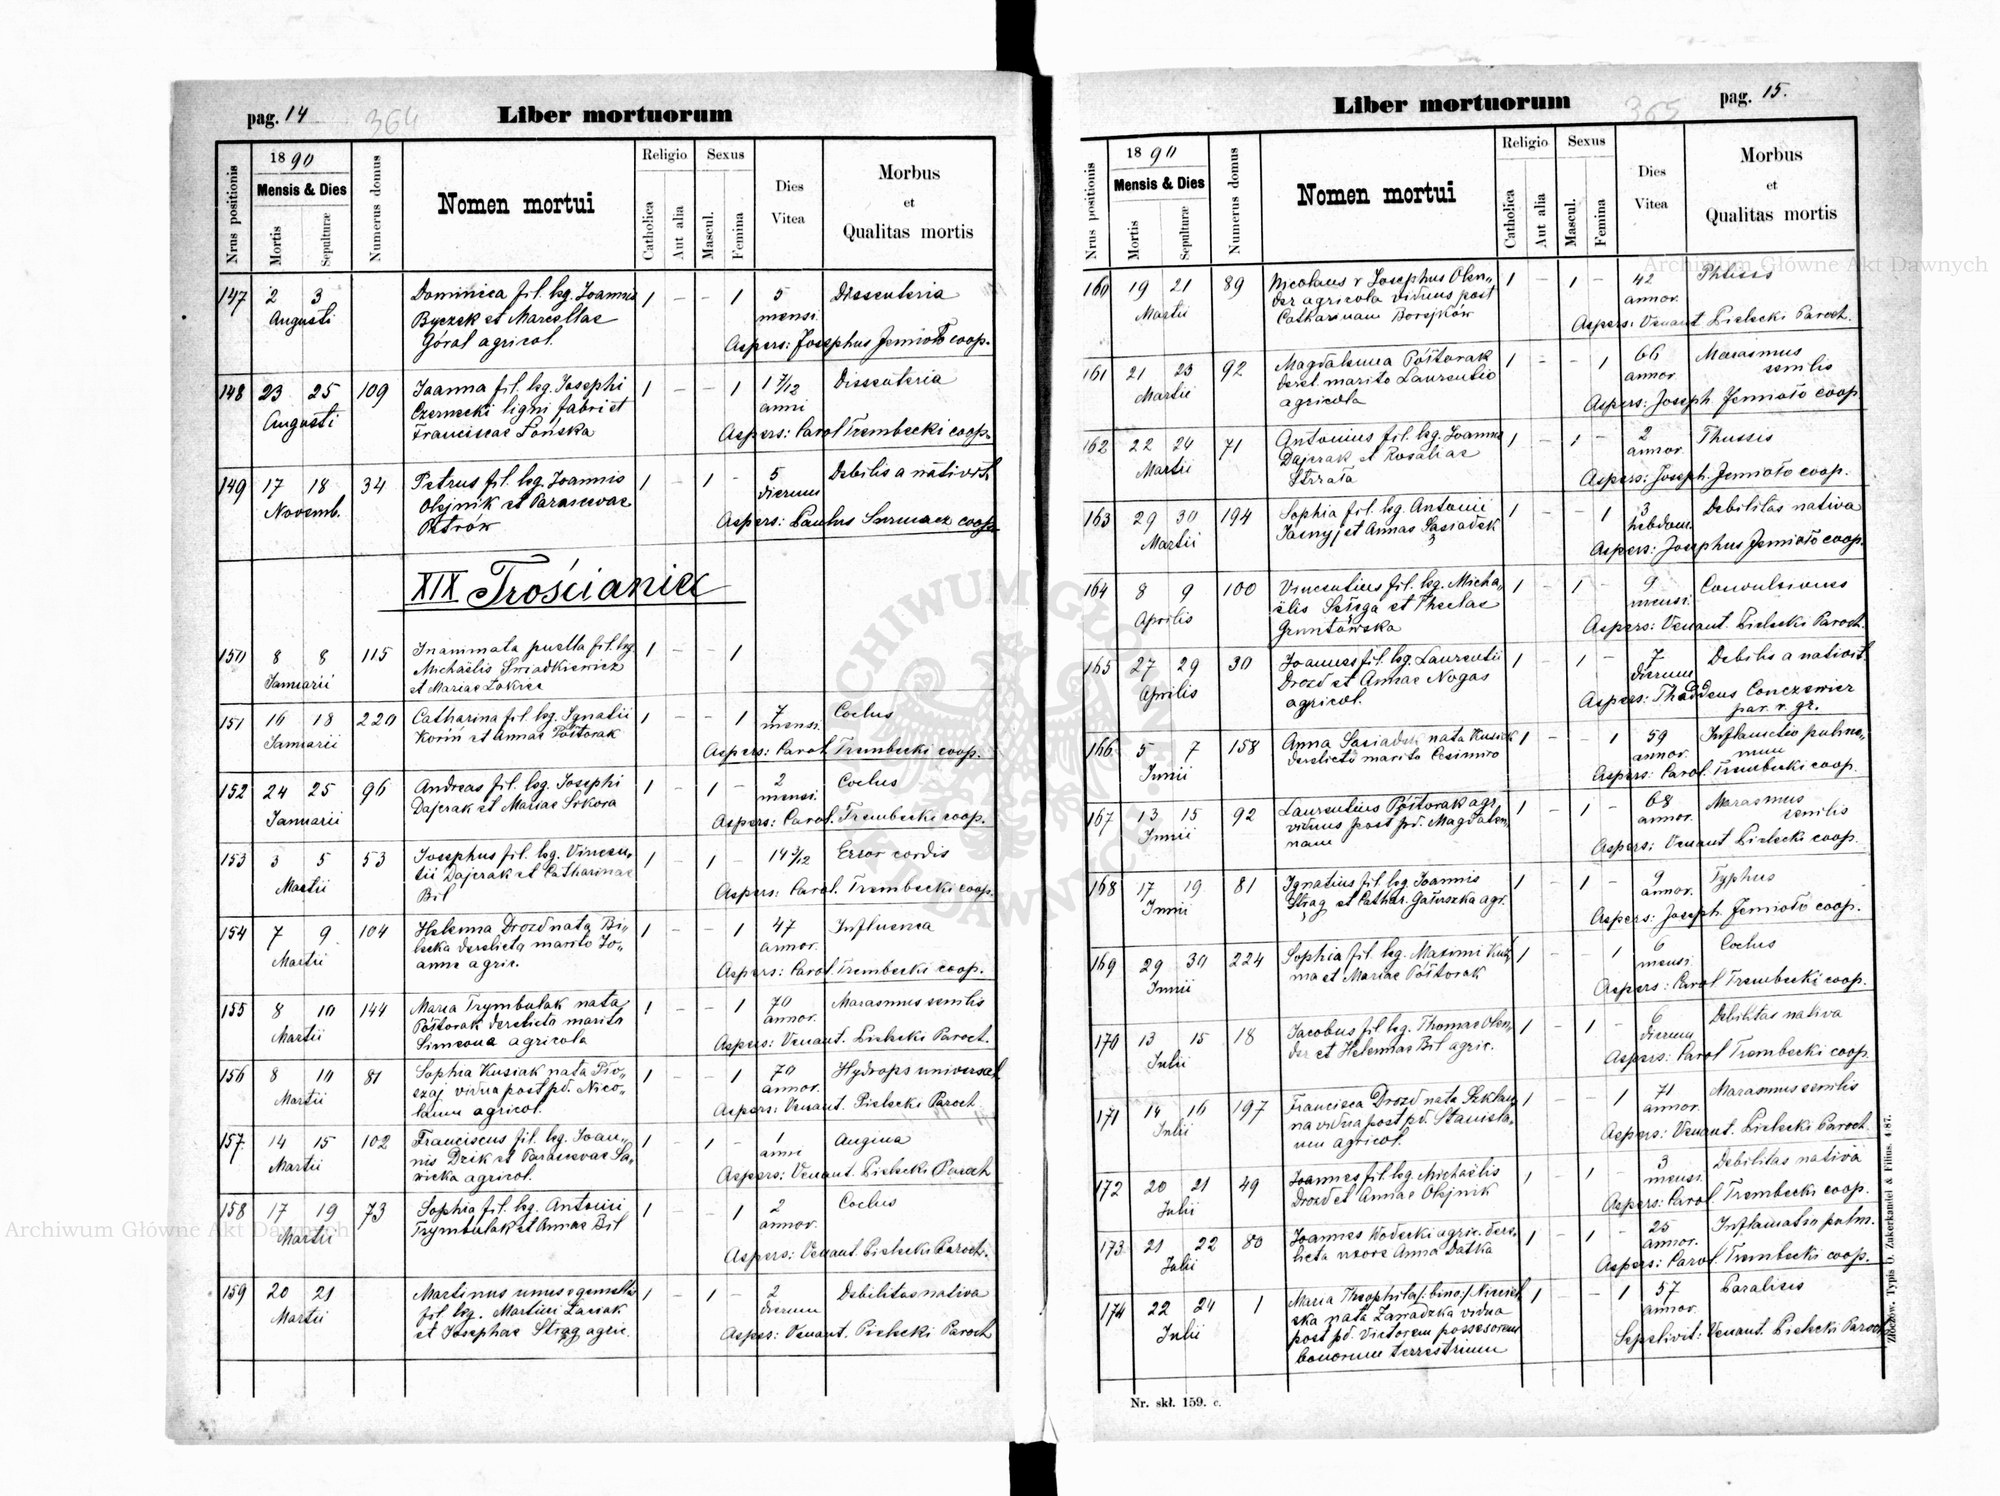 pag. 14
364
Liber mortuorum
Nrus positionis
1890
Mensis & Dies
Mortis
Sepulturæ
Numerus domus
Nomen mortui
Religio
Catholica
Aut alia
Sexus
Mascul.
Femina
Dies
Vitea
Morbus
et
Qualitas mortis
147 2 3 Dominica fil. leg. Joannis 1 – – 1 5 Dissenteria
Augusti Byczek et Marcellae mensi.
Góral agricol. Aspers: Josephus Jemioło coop.
148 23 25 109 Joanna fil. leg. Josephi 1 – – 1 1 7/12 Dissenteria
Augusti Czernecki ligni fabri et anni
Franciscae Łońska Aspers: Carol Trembecki coop.
149 17 18 34 Petrus fil. leg. Joannis 1 – 1 – 5 Debilis a nativit.
Novemb. Olejnik et Parascevae dierum
Petrów Aspers: Paulus coop.
XIX Trościaniec
150 8 8 115 Inanimata puella fil. leg. 1 – – 1
Januarii Michaëlis Swiadkiewicz
et Mariae
151 16 18 220 Catharina fil. leg. Ignatii 1 – – 1 7 Coclus
Januarii Koriń et Annae Półtorak mensi.
Aspers: Carol. Trembecki coop.
152 24 25 96 Andreas fil. leg. Josephi 1 – 1 – 2 Coclus
Januarii Dajerak et Mariae Sikora mensi.
Aspers: Carol. Trembecki coop.
153 3 5 53 Josephus fil. leg. Vincen„ 1 – 1 – 14 3/12 Error cordis
Martii tii Dajerak et Catharinae
Bil Aspers: Carol. Trembecki coop.
154 7 9 104 Helenna Drozd nata Bi„ 1 – – 1 47 Influenca
Martii lecka derelicta marito Jo„ annor.
anne agric. Aspers: Carol. Trembecki coop.
155 8 10 144 Maria Trymbulak nata 1 – – 1 70 Marasmus senilis
Martii Półtorak derelicta marito annor.
Simeone agricola Aspers: Venant. Bielecki Paroch.
156 8 10 81 Sophia Kusiak nata 1 – – 1 70 Hydrops universal.
Martii vidua post pd. Nico„ annor.
laum agricol. Aspers: Venant. Bielecki Paroch
157 14 15 102 Franciscus fil. leg. Joan„ 1 – 1 – 1 Angina
Martii nis Dzik et Parascevae Sa„ anni
wicka agricol. Aspers: Venant. Bielecki Paroch
158 17 19 73 Sophia fil. leg. Antonii 1 – – 1 2 Coclus
Martii Trymbulak et Annae Bil annor.
Aspers: Venant. Bielecki Paroch.
159 20 21 Martinus unus e gemellis 1 – 1 – 2 Debilitas nativa
Martii fil. leg. Martini dierum
et Josephae Strąg agric. Aspers: Venant. Bielecki Paroch
pag. 15.
365
Liber mortuorum
Nrus positionis
1890
Mensis & Dies
Mortis
Sepulturæ
Numerus domus
Nomen mortui
Religio
Catholica
Aut alia
Sexus
Mascul.
Femina
Dies
Vitea
Morbus
et
Qualitas mortis
160 19 21 89 Nicolaus v Josephus Olen„ 1 – 1 – 42 Phtisis
Martii der agricola viduus post annor.
Catharinam Borejków Aspers: Venant Bielecki Paroch.
161 21 23 92 Magdalenna Półtorak 1 – – 1 66 Marasmus
Martii derel. marito Laurentio annor. senilis
agricola Aspers: Joseph. Jemioło coop
162 22 24 71 Antonius fil. leg. Joannis 1 – 1 – 2 Thussis
Martii Dajerak et Rosaliae annor.
Aspers: Joseph. Jemioło coop.
163 29 30 194 Sophia fil. leg. Antonii 1 – – 1 3 Debilitas nativa
Martii et Annae Sąsiadek hebdom.
Aspers: Josephus Jemioło coop.
164 8 9 100 Vincentius fil. leg. Micha„ 1 – 1 – 9 Convulsiones
Aprilis ëlis et Theclae mensi.
Gruntowska Aspers: Venant. Bielecki Paroch.
165 27 29 30 Joannes fil. leg. Laurentii 1 – 1 – 7 Debilis a nativit.
Aprilis Drozd et Annae Nogas dierum
agricol. Aspers: Thaddeus Conczewicz
par. r. gr.
166 5 7 158 Anna Sąsiadek nata Kusiak 1 – – 1 59 Inflamatio pulmo„
Junii derelicto marito Casimiro annor. num
Aspers: Carol. Trembecki coop.
167 13 15 92 Laurentius Półtorak agr. 1 – 1 – 68 Marasmus
Junii viduus post pd. Magdalen„ annor. senilis
nam Aspers: Venant Bielecki coop.
168 17 19 81 Ignatius fil. leg. Joannis 1 – 1 – 9 Typhus
Junii Strąg et Cathar. Gałuszka agr. annor.
Aspers: Joseph. Jemioło coop.
169 29 30 224 Sophia fil. leg. Maximi Kuź„ 1 – – 1 6 Coclus
Junii ma et Mariae Półtorak mensi.
Aspers: Carol Trembecki coop.
170 13 15 18 Jacobus fil leg. Thomae Olen„ 1 – 1 – 6 Debilitas nativa
Julii der et Helennae Bil agric. dierum
Aspers: Carol Trembecki coop.
171 14 16 197 Francisca Drozd nata Szklan„ 1 – – 1 71 Marasmus senilis
Julii na vidua post pd. Stanisla„ annor.
um agricol. Aspers: Venant. Bielecki Paroch
172 20 21 49 Joannes fil. leg. Michaëlis 1 – 1 – 3 Debilitas nativa
Julii Drozd et Annae Olejnik mensi.
Aspers: Carol. Trembecki coop.
173 21 22 80 Joannes Wodecki agric. dere„ 1 – 1 – 25 Inflamatio pulm.
Julii licta uxore Anna Datka annor.
Aspers: Carol. Trembecki coop.
174 22 24 1 Maria Theophila /: bino :/ 1 – – 1 57 Paralisis
Julii ska nata Zawadzka vidua annor.
post pd. Victorem possesorem Sepelivit: Venant. Bielecki Paroch
bonorum terrestrium
Nr. skł. 159. c.
Złoczów. Typis O. Zukerkandel & Filius. 4/87.
Archiwum Główne Akt Dawnych
Archiwum Główne Akt Dawnych
ARCHIWUM GŁÓWNE AKT DAWNYCH